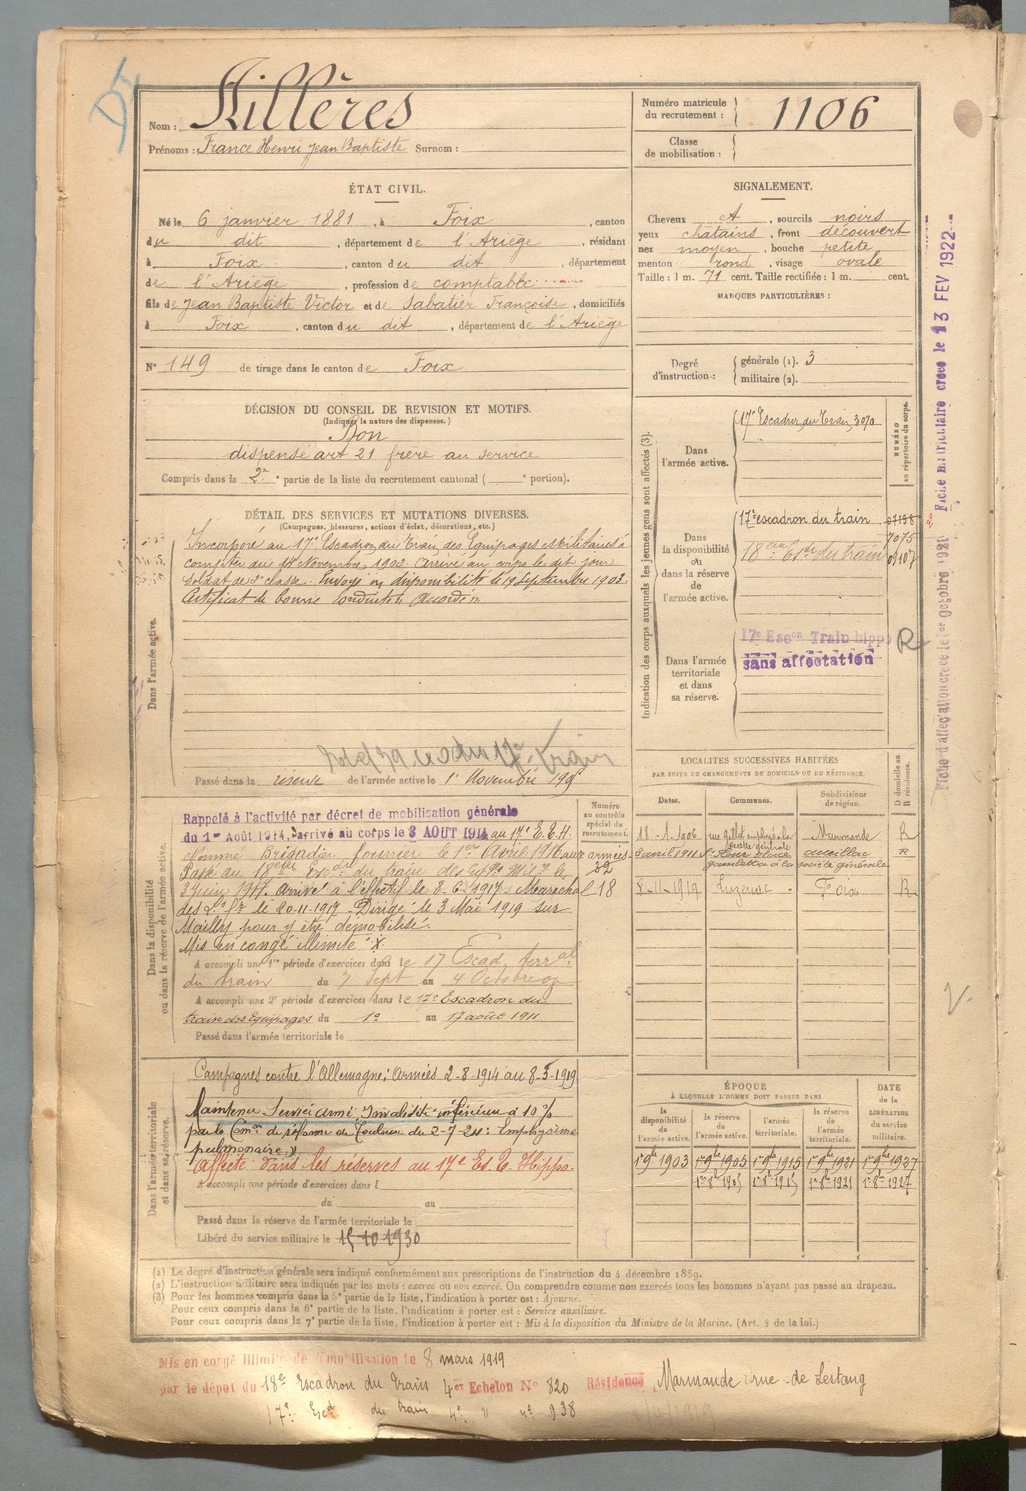 Nom : Aillères
Prénoms : France Henri Jean Baptiste Surnom :
Numéro matricule du recrutement : 1106
Classe de mobilisation :
ÉTAT CIVIL.
Né le 6 janvier 1881, à Foix, canton
du dit, département de l'Ariège, résidant
à Foix, canton du dit, département
de l'Ariège, profession de comptable
fils de Jean Baptiste Victor et de Sabatier Françoise, domiciliés
à Foix, canton du dit, département de l'Ariège
N° 149 de tirage dans le canton de Foix
SIGNALEMENT.
Cheveux et, sourcils noirs
yeux chatains, front découvert
nez moyen, bouche petite
menton rond, visage ovale
Taille : 1 m. 71 cent. Taille rectifiée : 1 m. cent.
MARQUES PARTICULIÈRES :
Degré d'instruction : générale (1). 3
militaire (2).
DÉCISION DU CONSEIL DE REVISION ET MOTIFS.
(Indiquer la nature des dispenses.)
Bon
dispensé art 21 frère au service
Compris dans la 2e partie de la liste du recrutement cantonal ( portion).
DÉTAIL DES SERVICES ET MUTATIONS DIVERSES.
(Campagnes, blessures, actions d'éclat, décorations, etc.)
Dans l'armée active.
Incorporé au 17e Escadron du Train des Equipages Militaires à
compter du 14 Novembre 1902. Arrivé au corps le dit jour
Soldat de 2e classe. Envoyé en disponibilité le 19 Septembre 1903.
Certificat de bonne conduite accordé.
Passé dans la réserve de l'armée active le 1er Novembre 190
Indication des corps auxquels les jeunes gens sont affectés (3).
NUMÉRO au répertoire du corps.
Dans l'armée active.
17e Escadron du Train 3070
Dans la disponibilité ou dans la réserve de l'armée active.
17e escadron du train
7075
18e Esc du train
Dans l'armée territoriale et dans sa réserve.
17e Escon Train hippo R
sans affectation
Fiche matriculaire créée le 13 FEV 1922
Dans la disponibilité ou dans la réserve de l'armée active.
Rappelé à l'activité par décret de mobilisation générale
du 1er Août 1914, arrivé au corps le 3 AOUT 1914 au 17e E.T.H.
Nommé Brigadier fourrier le 1er Avril 1916 aux armées
Passé au 18ème Escon du train des Eqges Mres le
2 juin 1917. Arrivé à l'effectif le 8-6-1917. Marechal
des L. fr le 20-11-1917. Dirigé le 3 Mai 1919 sur
Mailly pour y être démobilisé.
Mis en congé illimité X
A accompli une 1re période d'exercices dans le 17 Escad. terral
du train du 7 Sept au 4 Octobre 09
A accompli une 2e période d'exercices dans le 17e Escadron du
train des équipages du 1er au 17 août 1911
Passé dans l'armée territoriale le
Numéro au contrôle spécial du recrutement.
32
18
LOCALITÉS SUCCESSIVES HABITÉES
PAR SUITE DE CHANGEMENTS DE DOMICILE OU DE RÉSIDENCE.
Dates. Communes. Subdivisions de région. D domicile ou R résidence.
18-1-1906 Marmande R
3 avril 1911 St Flour Aurillac R
société générale
8-11-1919 Luzenac Foix R
Dans l'armée territoriale et dans sa réserve.
Campagnes contre l'Allemagne: Armées 2-8-1914 au 8-5-1919
Maintenu Service armé Invalidité inférieure à 10%
par la Comon de réforme de Toulouse du 2-7-24: Emphysème
pulmonaire.
Affecté dans les réserves au 17e Es. T. Hippo.
A accompli une période d'exercices dans l
du au
Passé dans la réserve de l'armée territoriale le
Libéré du service militaire le 15-10-1930
ÉPOQUE
À LAQUELLE L'HOMME DOIT PASSER DANS
la disponibilité de l'armée active. la réserve de l'armée active. l'armée territoriale. la réserve de l'armée territoriale.
DATE de la LIBÉRATION du service militaire.
1er 9bre 1903 1er 9bre 1905 1er 9bre 1915 1er 9bre 1921 1er 9bre 1927
1er 8bre 1905 1er 8bre 1915 1er 8bre 1921 1er 8bre 1927
(1) Le degré d'instruction générale sera indiqué conformément aux prescriptions de l'instruction du 4 décembre 1889.
(2) L'instruction militaire sera indiquée par les mots : exercé ou non exercé. On comprendra comme non exercés tous les hommes n'ayant pas passé au drapeau.
(3) Pour les hommes compris dans la 5e partie de la liste, l'indication à porter est : Ajourné.
Pour ceux compris dans la 6e partie de la liste, l'indication à porter est : Service auxiliaire.
Pour ceux compris dans la 7e partie de la liste, l'indication à porter est : Mis à la disposition du Ministre de la Marine. (Art. 4 de la loi.)
Mis en congé illimité de démobilisation le 8 mars 1919
par le dépôt du 18e Escadron du Train 4e Echelon N° 820 Résidence Marmande rue de Lestang
17e Escd du train 4e " n° 938